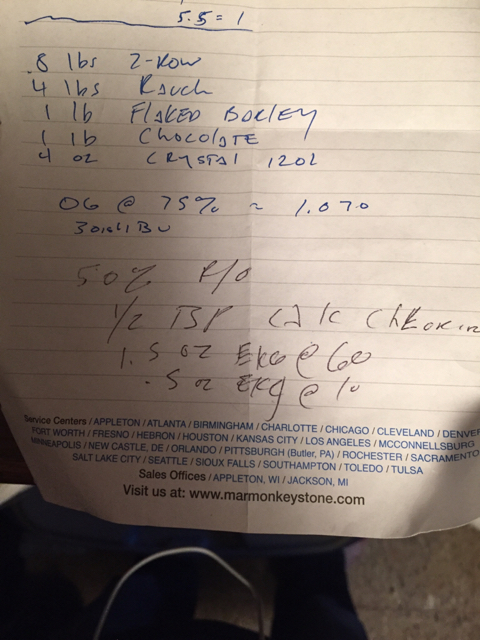 5.5 = 1
8 lbs 2-Row
4 lbs Rauch
1 lb Flaked Barley
1 lb Chocolate
4 oz Crystal 120L
OG @ 75% ~ 1.070
30ish IBU
50% R/O
1/2 TSP Calc Chlor
1.5 oz EKG @ 60
.5 oz EKg @ 10
Service Centers / APPLETON / ATLANTA / BIRMINGHAM / CHARLOTTE / CHICAGO / CLEVELAND / DENVER
FORT WORTH / FRESNO / HEBRON / HOUSTON / KANSAS CITY / LOS ANGELES / MCCONNELLSBURG
MINNEAPOLIS / NEW CASTLE, DE / ORLANDO / PITTSBURGH (Butler, PA) / ROCHESTER / SACRAMENTO
SALT LAKE CITY / SEATTLE / SIOUX FALLS / SOUTHAMPTON / TOLEDO / TULSA
Sales Offices / APPLETON, WI / JACKSON, MI
Visit us at: www.marmonkeystone.com